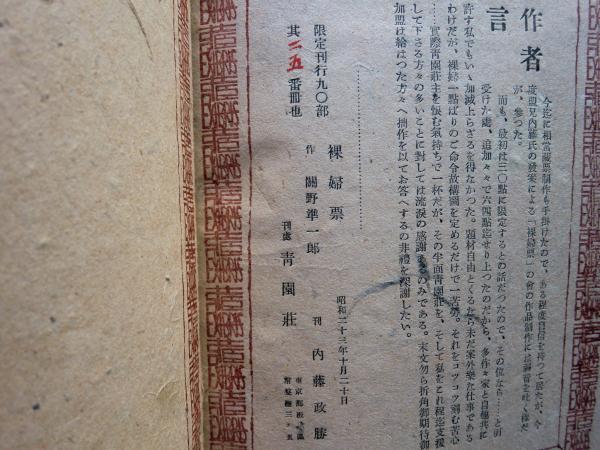 作者言
今迄に相當藏票制作も手掛けたので、ある程度自信を持つて居たが、今
度盟兄内藤氏の發案による「裸婦票」の會の作品制作には
が、參つた。
而も、最初は三〇點に限定するとの話だつたので、その位なら……と引
受けた處、追加々々で六四點迄せり上つたのだから、多作々家と自
許す私でもいゝ加減上らざるを得なかつた。題材自由とくるなら未だ案外樂な仕事である
わけだが、裸婦一點ばりのご命令故構圖を定めるだけで一苦勞。それをコツコツ刻む苦心
……實際青園莊主を恨む氣持ちで一杯だが、その半面青園莊を、そして私をこれ程迄支援
して下さる方々の多いことに對しては流淚の感謝あるのみである。末文勿ら折角御期待御
加盟し給はつた方々へ拙作を以てお答へするの非禮を深謝したい。
裸婦票
限定刊行九〇部
其二五番冊也
作 關野準一郎
刊處 青園莊
昭和二十三年十月二十日
刊 内藤政勝
東京都